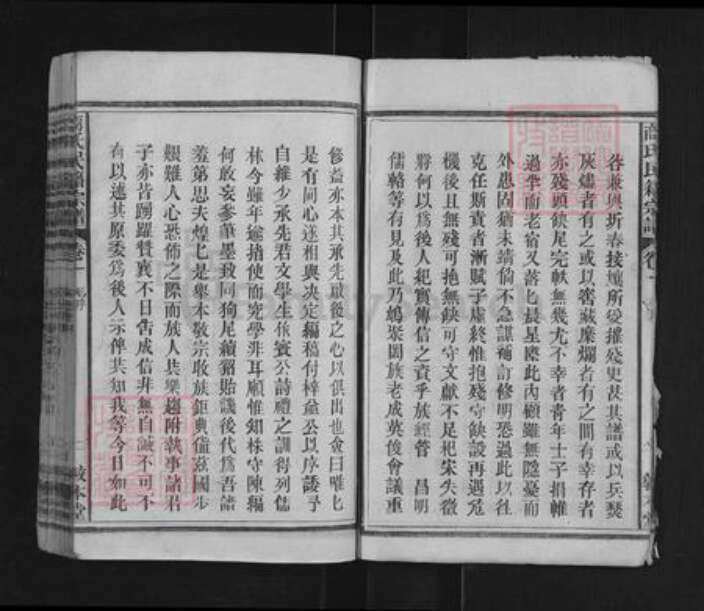 谷兼與圻春接壤所受摧殘更甚其譜或以兵燹
灰燼者有之或以密藏糜爛者有之間有幸存者
亦殘頭缺尾完帙無幾尤不幸者青年士子捐帷
過半而老宿又落匕晨星際此內顧雖無隱憂而
外患固猶未靖倘不急謀補訂修明恐過此以往
克任斯責者漸賦子虛終惟抱殘守缺設再遇危
機後且無殘可抱無缺可守文獻不足杞宋失徵
將何以爲後人紀實傳信之資乎族經營 昌明
儒輅等有見及此乃鳩聚闔族老成英俊會議重
修益亦本其承先啟後之心以俱出也僉曰唯匕
是有同心遂相與决定編稿付梓僉公以序諉予
自維少承先君文學生 賓公詩禮之訓得列儒
林今雖年逾指使而究學非耳順惟知株守陳編
何敢妄參筆墨致同狗尾續貂貽譏後代爲吾譜
羞第思夫煌匕是舉本敬宗收族鉅典值茲國步
艱難人心恐怖之際而族人共樂趨附執事諸君
子亦皆踴躍贊襄不日告成信非無自誠不可不
有以述其原委爲後人示俾共知我等今日如此
氏民籍宗譜 卷一
敦本堂